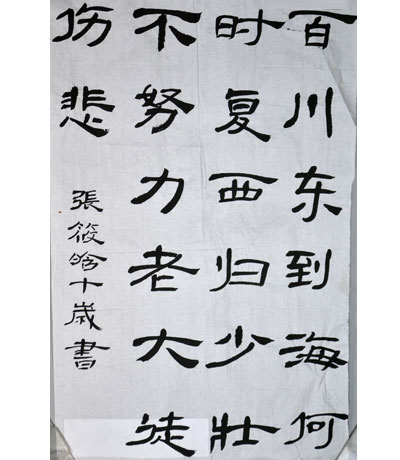 百川东到海何
时复西归少壮
不努力老大徒
伤悲
張筱晗十歲書